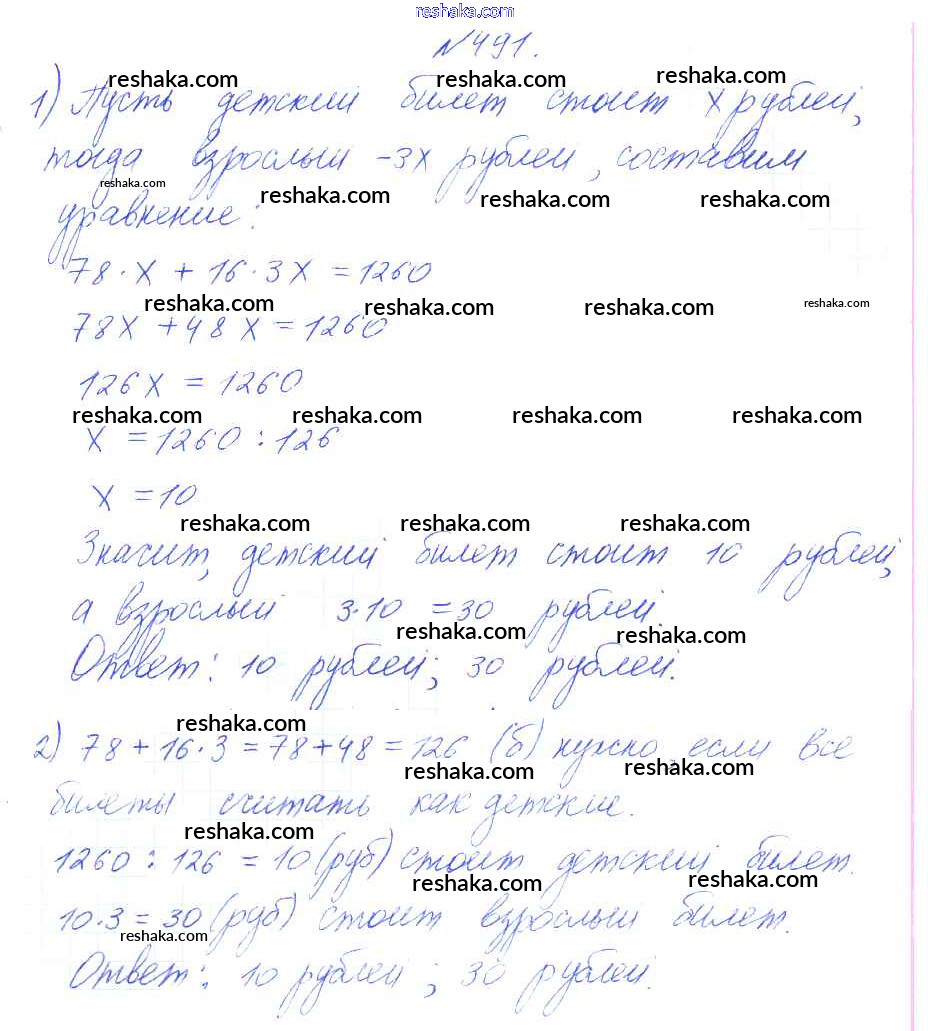 reshaka.com
№491.
reshaka.com reshaka.com reshaka.com
1) Пусть детский билет стоит x рублей,
тогда взрослый -3x рублей, составим
reshaka.com reshaka.com reshaka.com reshaka.com
уравнение:
78·x + 16·3x = 1260
reshaka.com reshaka.com reshaka.com reshaka.com
78x + 48x = 1260
126x = 1260
reshaka.com reshaka.com reshaka.com reshaka.com
x = 1260 : 126
x = 10
reshaka.com reshaka.com reshaka.com
Значит, детский билет стоит 10 рублей,
а взрослый 3·10 = 30 рублей.
reshaka.com reshaka.com
Ответ: 10 рублей; 30 рублей.
reshaka.com
2) 78 + 16·3 = 78 + 48 = 126 (б) нужно, если все
reshaka.com reshaka.com
билеты считать как детские.
reshaka.com
1260 : 126 = 10 (руб) стоит детский билет.
reshaka.com reshaka.com
10·3 = 30 (руб) стоит взрослый билет.
reshaka.com
Ответ: 10 рублей; 30 рублей.